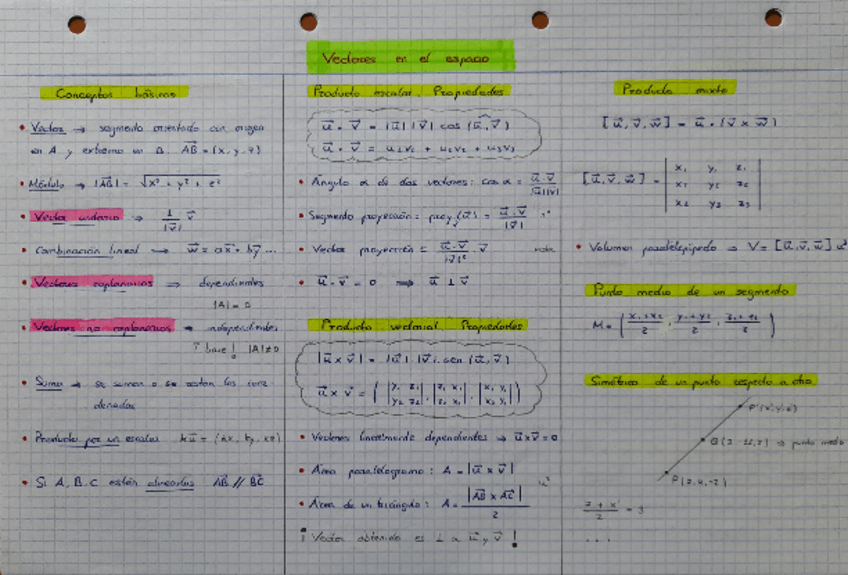 Vectores en el espacio
Conceptos básicos
• Vector → segmento orientado con origen
en A y extremo en B. AB = (x, y, z)
• Módulo → |AB| = √x² + y² + z²
• Vector unitario ⇒ 1/|v| v
• Combinación lineal → w = ax + by ...
• Vectores coplanarios ⇒ dependientes
|A| = 0
• Vectores no coplanarios → independientes
base! |A| ≠ 0
• Suma → se suman o se restan las coor
denadas
• Producto por un escalar ku = (kx, ky, kz)
• Si A, B, C están alineados AB // BC
Producto escalar. Propiedades
u · v = |u| |v| cos (u, v)
u · v = u₁v₁ + u₂v₂ + u₃v₃
• Ángulo α de dos vectores: cos α = u·v / |u||v|
• Segmento proyección: proy (u) = u·v / |v|
• Vector proyección = u·v / |v|² · v
• u · v = 0 ⇒ u ⊥ v
Producto vectorial. Propiedades
|u × v| = |u| · |v| · sen (u, v)
u × v = (|y₁ z₁ / y₂ z₂|, |z₁ x₁ / z₂ x₂|, |x₁ y₁ / x₂ y₂|)
• Vectores linealmente dependientes ⇒ u × v = 0
• Área paralelogramo: A = |u × v|
• Área de un triángulo: A = |AB × AC| / 2 u²
¡ Vector obtenido es ⊥ a u y v !
Producto mixto
[u, v, w] = u · (v × w)
[u, v, w] = | x₁ y₁ z₁
x₂ y₂ z₂
x₃ y₃ z₃ |
• Volumen paralelepípedo ⇒ V = [u, v, w] u³
Punto medio de un segmento
M = (x₁+x₂ / 2, y₁+y₂ / 2, z₁+z₂ / 2)
Simétrico de un punto respecto a otro
P'(x', y', z')
⇒ punto medio
2 + x' / 2 = 3
...